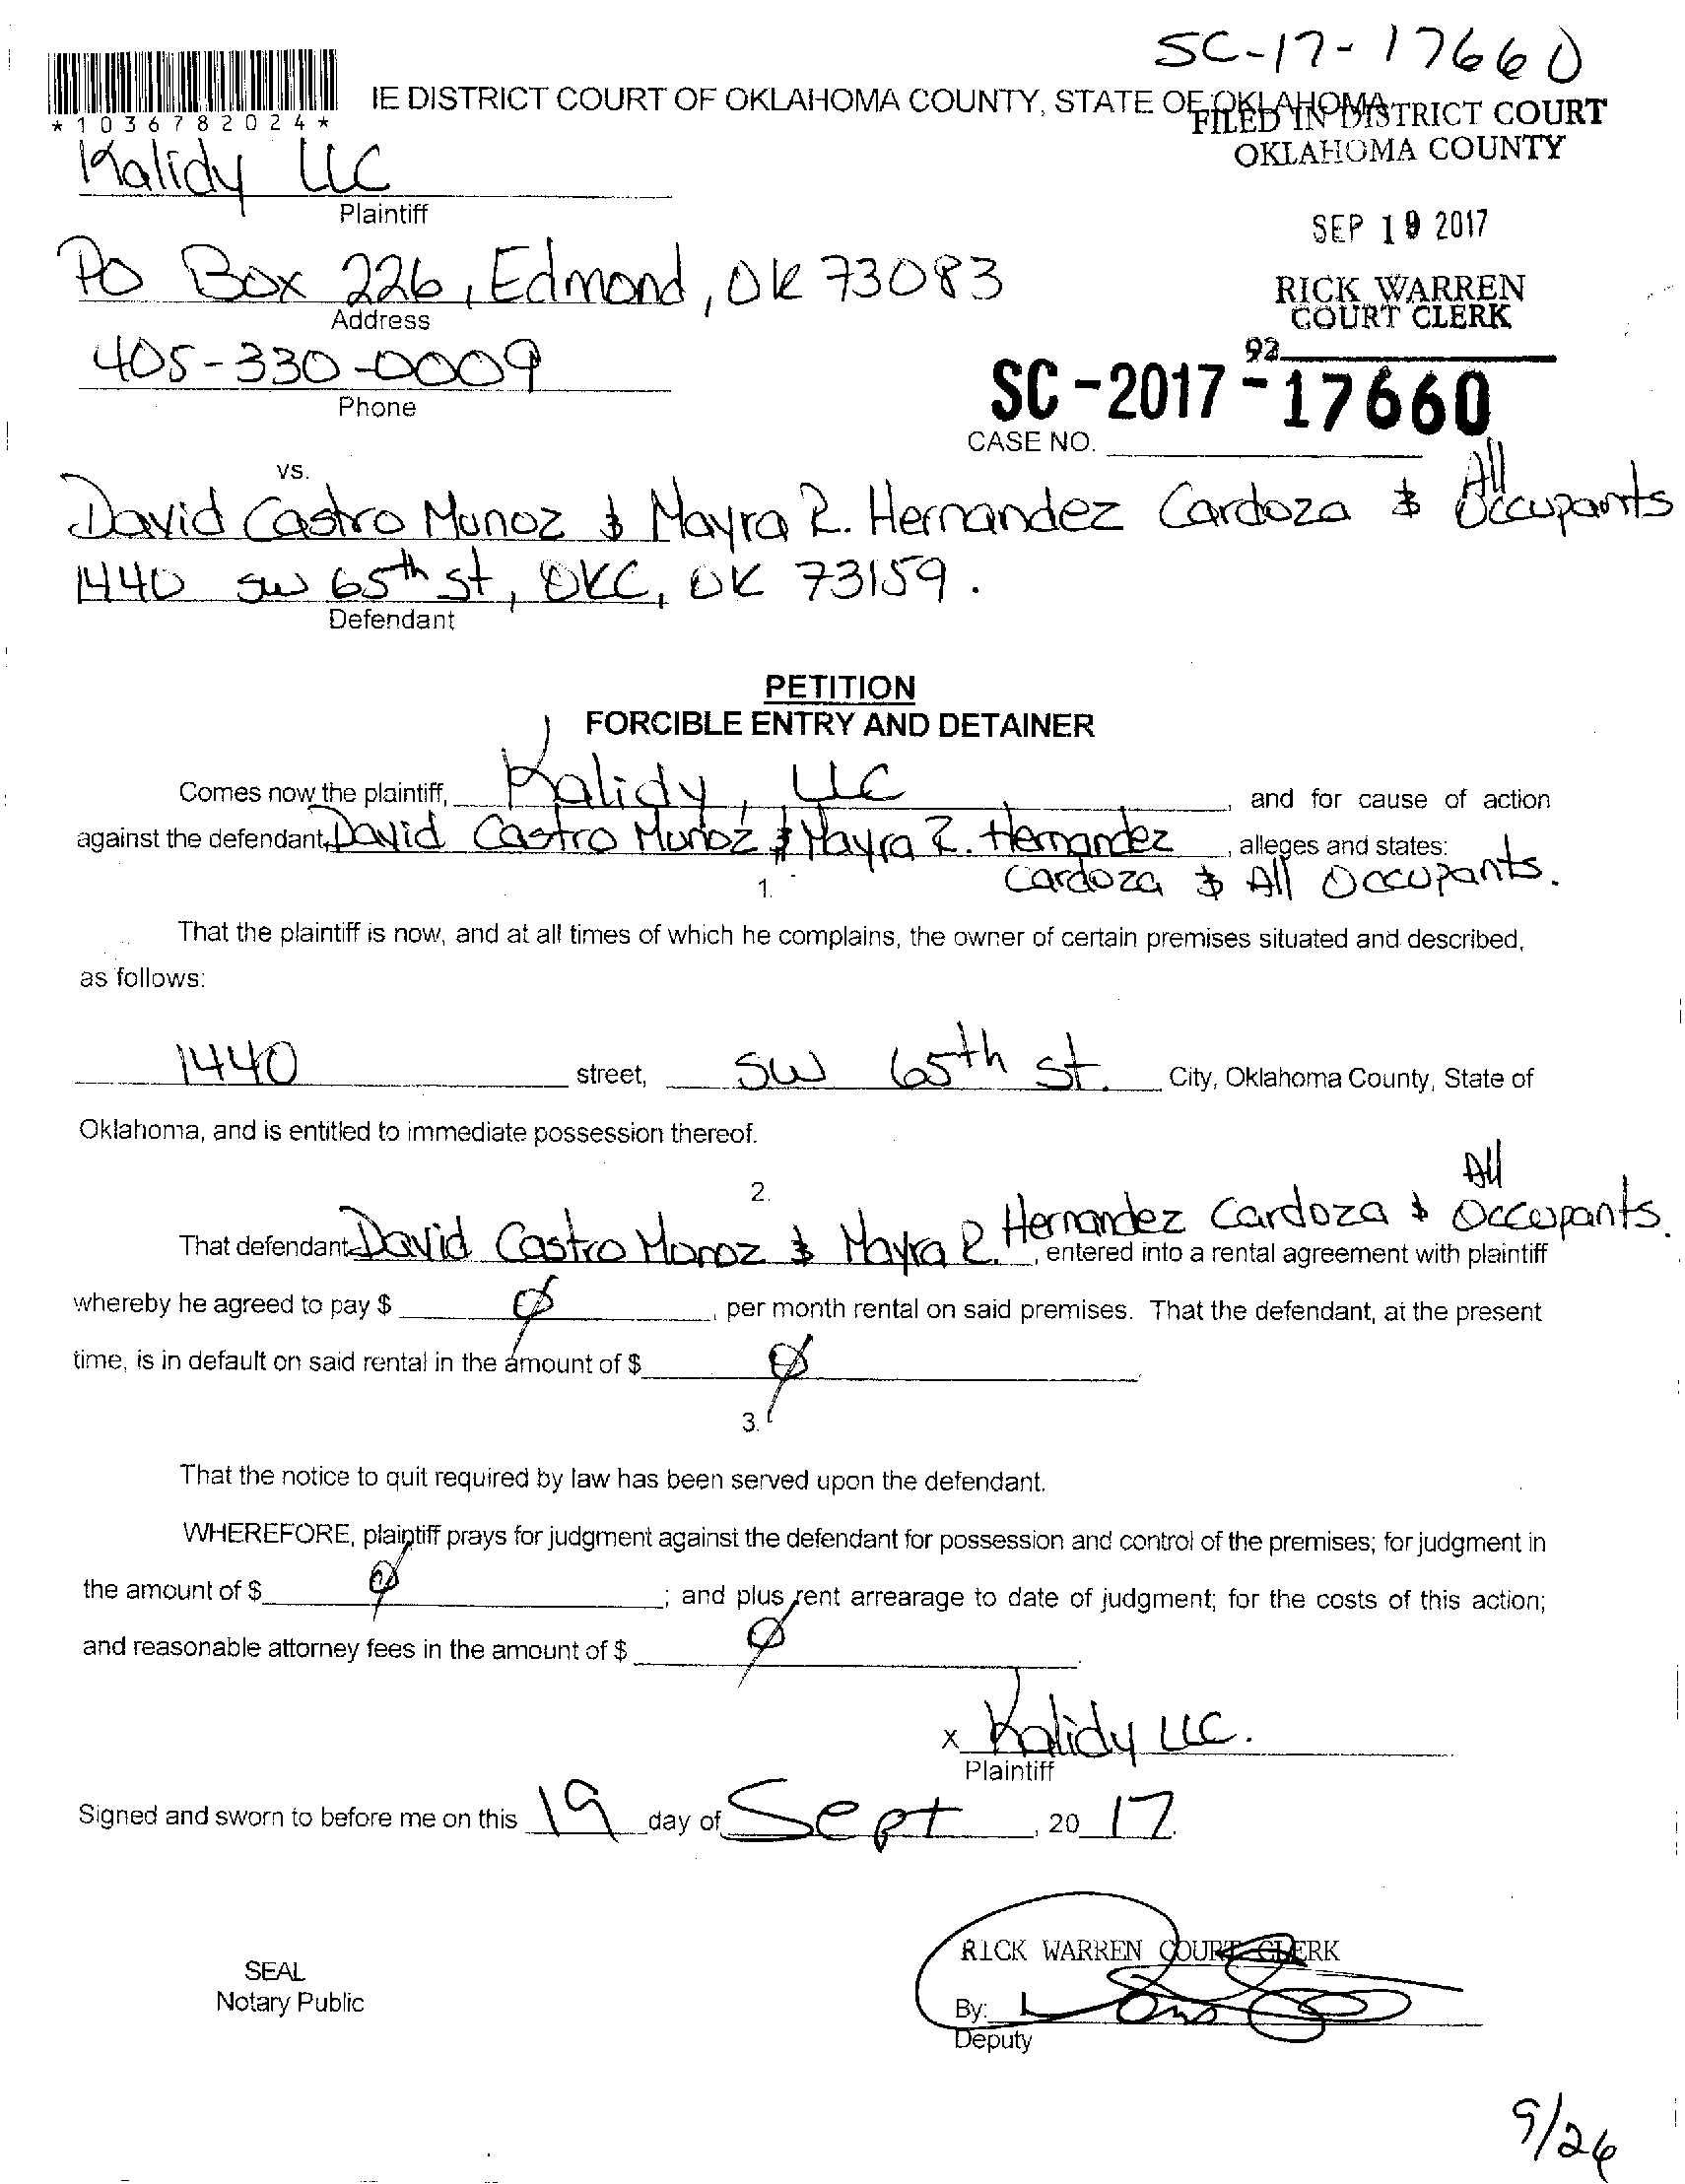 SC-17-17660
IE DISTRICT COURT OF OKLAHOMA COUNTY, STATE OF OKLAHOMA
*1036782024*
FILED IN DISTRICT COURT
OKLAHOMA COUNTY
Kalidy LLC
Plaintiff
SEP 19 2017
PO Box 226, Edmond, OK 73083
Address
RICK WARREN
COURT CLERK
405-330-0009
Phone
92
SC-2017-17660
CASE NO.
vs.
David Castro Munoz & Mayra R. Hernandez Cardoza & All Occupants
1440 SW 65th St, OKC, OK 73159.
Defendant
PETITION
FORCIBLE ENTRY AND DETAINER
Comes now the plaintiff, Kalidy, LLC, and for cause of action
against the defendant, David Castro Munoz & Mayra R. Hernandez, alleges and states:
Cardoza & All Occupants.
1.
That the plaintiff is now, and at all times of which he complains, the owner of certain premises situated and described,
as follows:
1440 street, SW 65th St. City, Oklahoma County, State of
Oklahoma, and is entitled to immediate possession thereof.
2.
That defendant David Castro Monoz & Mayra R. Hernandez Cardoza & All Occupants., entered into a rental agreement with plaintiff
whereby he agreed to pay $ Ø, per month rental on said premises. That the defendant, at the present
time, is in default on said rental in the amount of $ Ø
3.
That the notice to quit required by law has been served upon the defendant.
WHEREFORE, plaintiff prays for judgment against the defendant for possession and control of the premises; for judgment in
the amount of $ Ø; and plus rent arrearage to date of judgment; for the costs of this action;
and reasonable attorney fees in the amount of $ Ø
x Kalidy LLC.
Plaintiff
Signed and sworn to before me on this 19 day of Sept, 20 17.
RICK WARREN COURT CLERK
SEAL
Notary Public
By:
Deputy
9/26